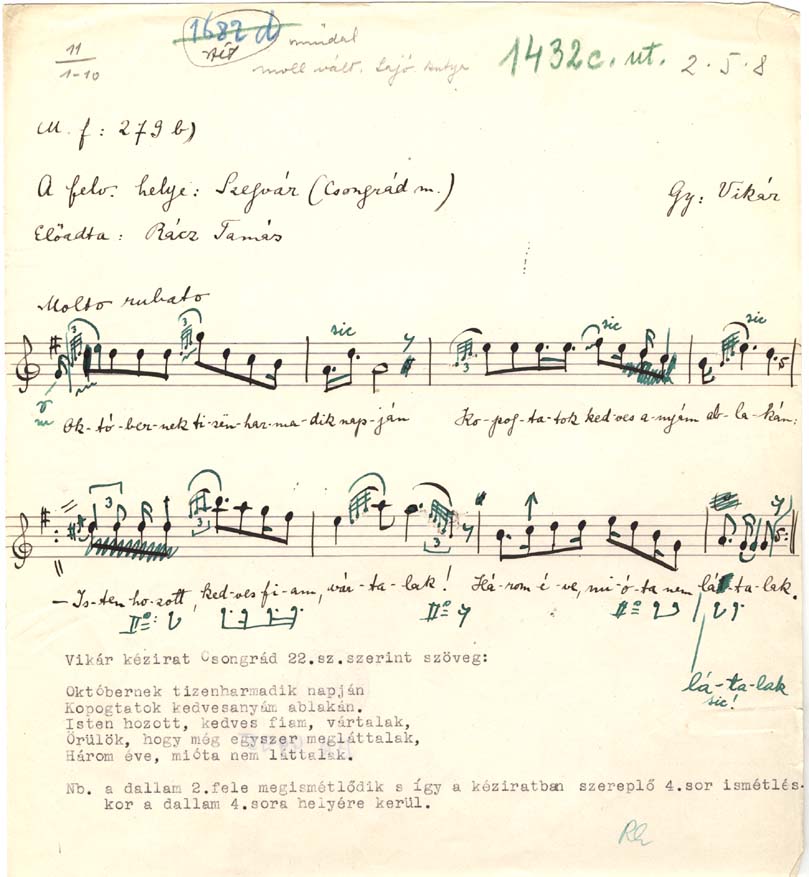 11
1-10
1682 d
múdal
moll vált. Sajó kutya
1432 c. ut. 2.5.8
M. f: 279 b)
A felv. helye: Szegvár (Csongrád m.) Gy: Vikár
Előadta: Rácz Tamás
Molto rubato
3 3 sic 3 sic sic
Ok-tó-ber-nek ti-zën-har-ma-dik nap-ján Ko-pog-ta-tok ked-ves a-nyám ab-la-kán:
3 3 3
- Is-ten ho-zott, ked-ves fi-am, vár-ta-lak! Há-rom é-ve, mi-ó-ta nem lá-ta-lak.
IIº: IIº IIº
lá-ta-lak
sic!
Vikár kézirat Csongrád 22.sz.szerint szöveg:
Októbernek tizenharmadik napján
Kopogtatok kedvesanyám ablakán.
Isten hozott, kedves fiam, vártalak,
Örülök, hogy még egyszer megláttalak,
Három éve, mióta nem láttalak.
Nb. a dallam 2.fele megismétlődik s így a kéziratban szereplő 4.sor ismétlés-
kor a dallam 4.sora helyére kerül.